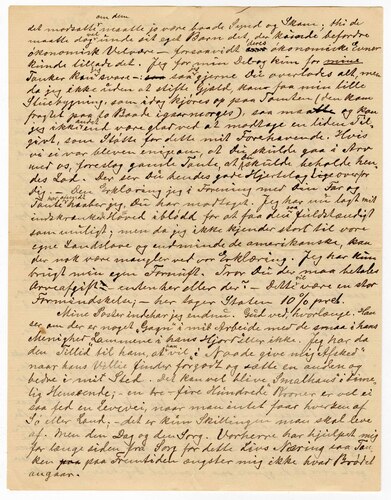 om dem
det modsatte maatte jo være baade Synd og Skam; thi de
maatte dog unde sit eget Barn det, der kunde befordre
økonomisk Velvære - forsaavidt deres økonomiske Evner
kunde tillade det. Jeg for min Del og kun for
Tanker kan svare - saa gjerne Du overlodes alt, men
da jeg ikke uden at stifte Gjæld, kan faa min lille
Stuebygning, som idag kjøres op paa Tomten (den kom
fragtet paa to Baade igaarmorges), saa maatte og kan
jeg ikke andet end være glad ved at modtage en liden Til
gift, som Støtte for dette mit Forehavende. Hvis
vi ei var bleven enigene at Du skulde gaa i Arv
med os, foreslog gamle Tante, at Du skulde beholde hen-
des Lod. Der ser Du hendes gode Hjertelag ligeover for
dig. - Den Erklæring jeg i Forening med Din Far og
Tante haaber jeg Du har modtaget. Jeg har nu lagt mit
indskrænkede Hoved iblødt for at faa den fuldstændigt
som muligt; men da jeg ikke kjender stort til vore
egne Landslove og endmindre de amerikanske, kan
der nok være mangler ved vor Erklæring. Jeg har kun
brugt min egen Fornuft. Tror Du der maa betales
Arveafgift - enten her eller der? - Dette vil være en stor
Formindskelse; - her tager Staten 10% pret.
Mine Poster indehar jeg endnu. Gud ved hvorlænge. Han
ser om der er noget "Gagn" i mit Arbeide med de smaa i hans
Menighed Lammene i hans Hjord eller ikke. Jeg har da
den Tillid til ham, at han vil "i Naade give mig Afsked"
naar hans Villie finder forgodt og sætte en anden og
bedre i mit Sted. Det kan vel blive Smalhans i time-
lig Henseende; en tre-fire Hundrede Kroner er ved ei
saa fed en Levevei, naar man intet faar hverken af
Sø eller Land. - det er kun Skillingen man skal leve
af. Men den Dag og den Sorg. Vorherre har hjulpet mig
for lange siden fra Sorg for dette Livs Næring saa Tan-
ken paa Fremtiden ængster mig ikke hvad Brødet
angaar.